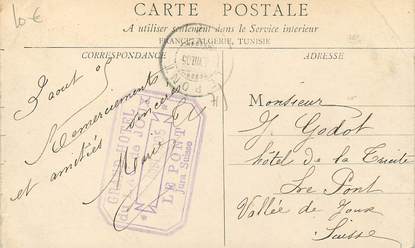 10€
CARTE POSTALE
A utiliser seulement dans le Service intérieur
FRANCE, ALGÉRIE, TUNISIE
CORRESPONDANCE
ADRESSE
3 aout 05
Remerciements
et amitiés sincères
Marie
GD HOTEL
LE PONT
Jura Suisse
LE PONT
VIII.05
Monsieur
J. Godot
hôtel de la Truite
Le Pont
Vallée de Joux
Suisse